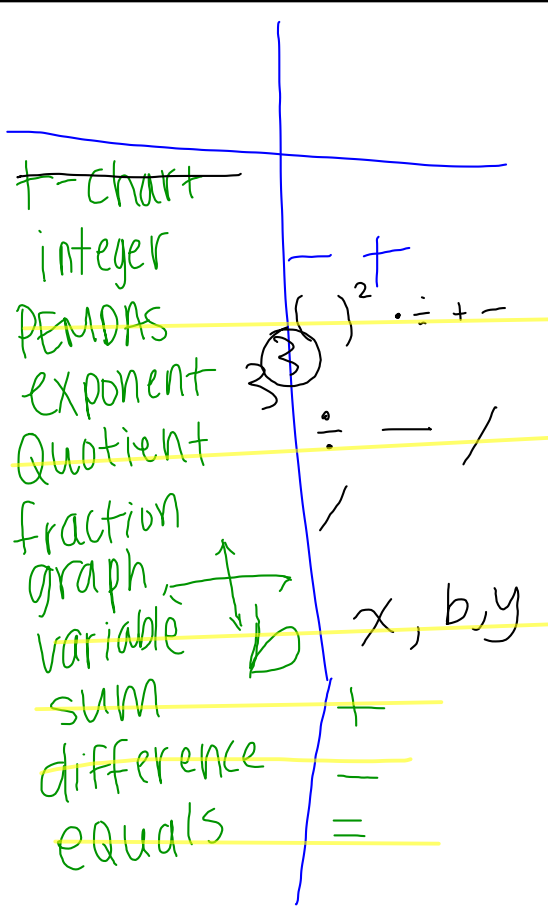 t-chart
integer − +
PEMDAS ( )² · ÷ + −
exponent 3³
Quotient ÷ — /
fraction /
graph
variable b x, b, y
sum +
difference −
equals =